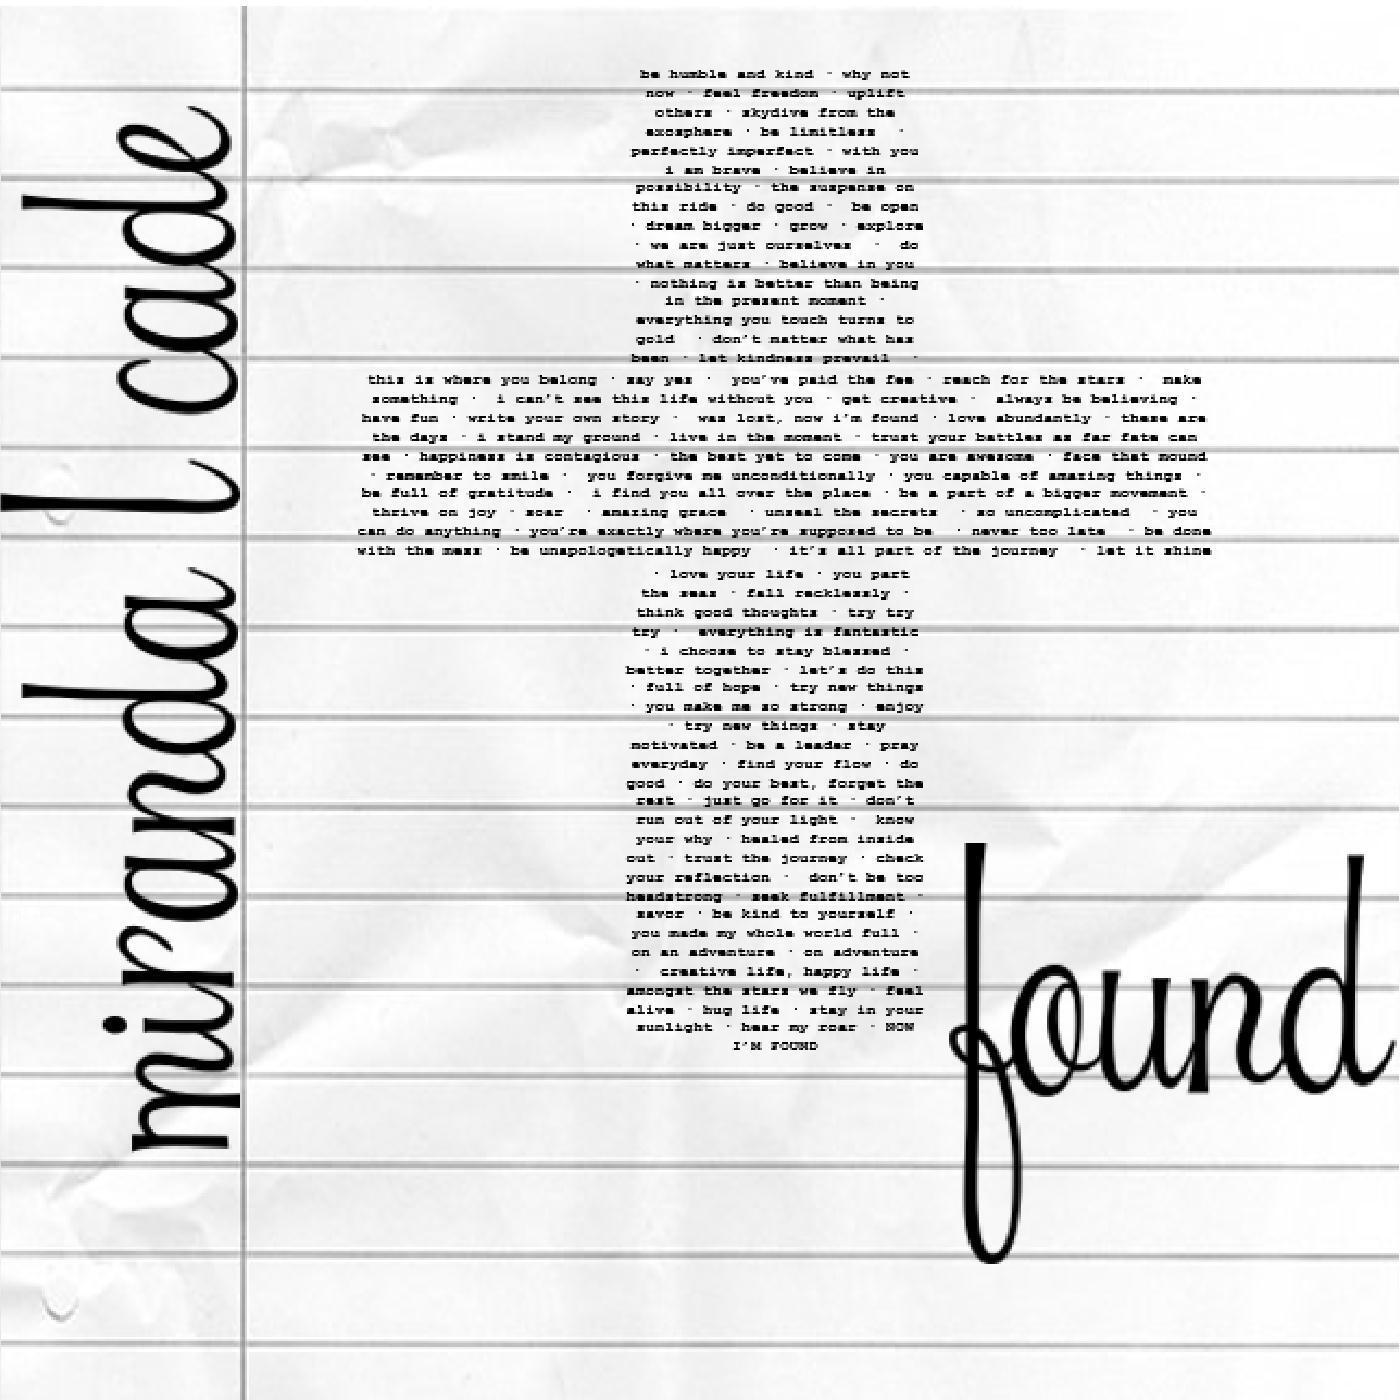 miranda l cade
be humble and kind · why not
now · feel freedom · uplift
others · skydive from the
exosphere · be limitless ·
perfectly imperfect · with you
i am brave · believe in
possibility · the suspense on
this ride · do good · be open
· dream bigger · grow · explore
· we are just ourselves · do
what matters · believe in you
· nothing is better than being
in the present moment ·
everything you touch turns to
gold · don't matter what has
been · let kindness prevail ·
this is where you belong · say yes · you've paid the fee · reach for the stars · make
something · i can't see this life without you · get creative · always be believing ·
have fun · write your own story · was lost, now i'm found · love abundantly · these are
the days · i stand my ground · live in the moment · trust your battles as far fate can
see · happiness is contagious · the best yet to come · you are awesome · face that mound
· remember to smile · you forgive me unconditionally · you capable of amazing things ·
be full of gratitude · i find you all over the place · be a part of a bigger movement ·
thrive on joy · soar · amazing grace · unseal the secrets · so uncomplicated · you
can do anything · you're exactly where you're supposed to be · never too late · be done
with the mess · be unapologetically happy · it's all part of the journey · let it shine
· love your life · you part
the seas · fall recklessly ·
think good thoughts · try try
try · everything is fantastic
· i choose to stay blessed ·
better together · let's do this
· full of hope · try new things
· you make me so strong · enjoy
· try new things · stay
motivated · be a leader · pray
everyday · find your flow · do
good · do your best, forget the
rest · just go for it · don't
run out of your light · know
your why · healed from inside
out · trust the journey · check
your reflection · don't be too
headstrong · seek fulfillment ·
savor · be kind to yourself ·
you made my whole world full ·
on an adventure · on adventure
· creative life, happy life ·
amongst the stars we fly · feel
alive · hug life · stay in your
sunlight · hear my roar · NOW
I'M FOUND
found